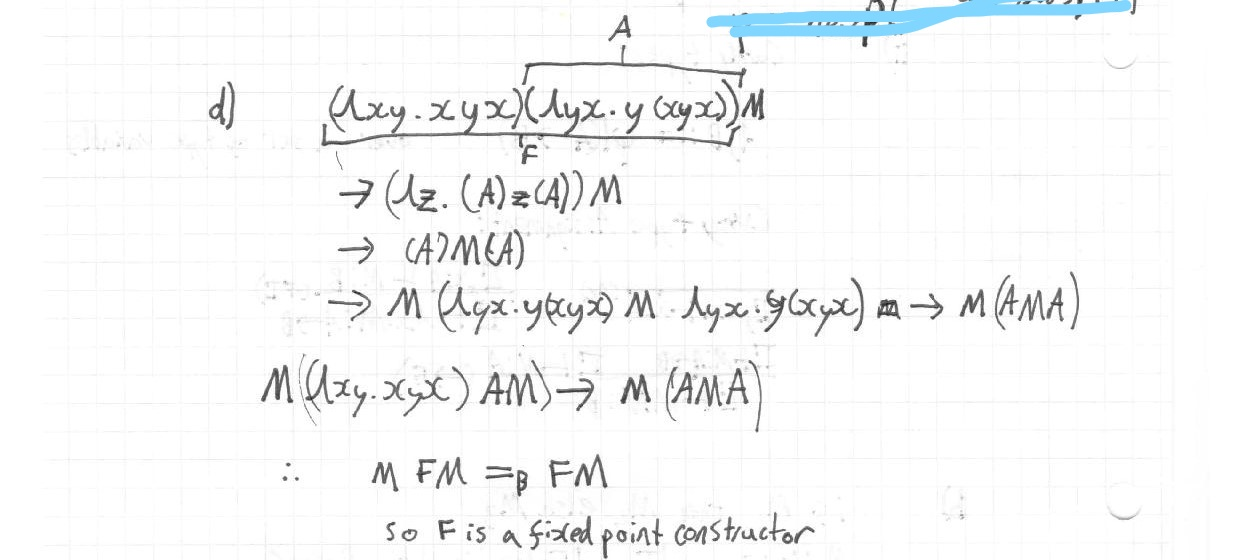 A
d) (λxy.xyx)(λyx.y(xyx))M
F
→ (λz.(A)z(A))M
→ (A)M(A)
→ M(λyx.y(xyx) M . λyx.y(xyx) → M(AMA)
M((λxy.xyx)AM) → M(AMA)
∴ M FM =β FM
so F is a fixed point constructor